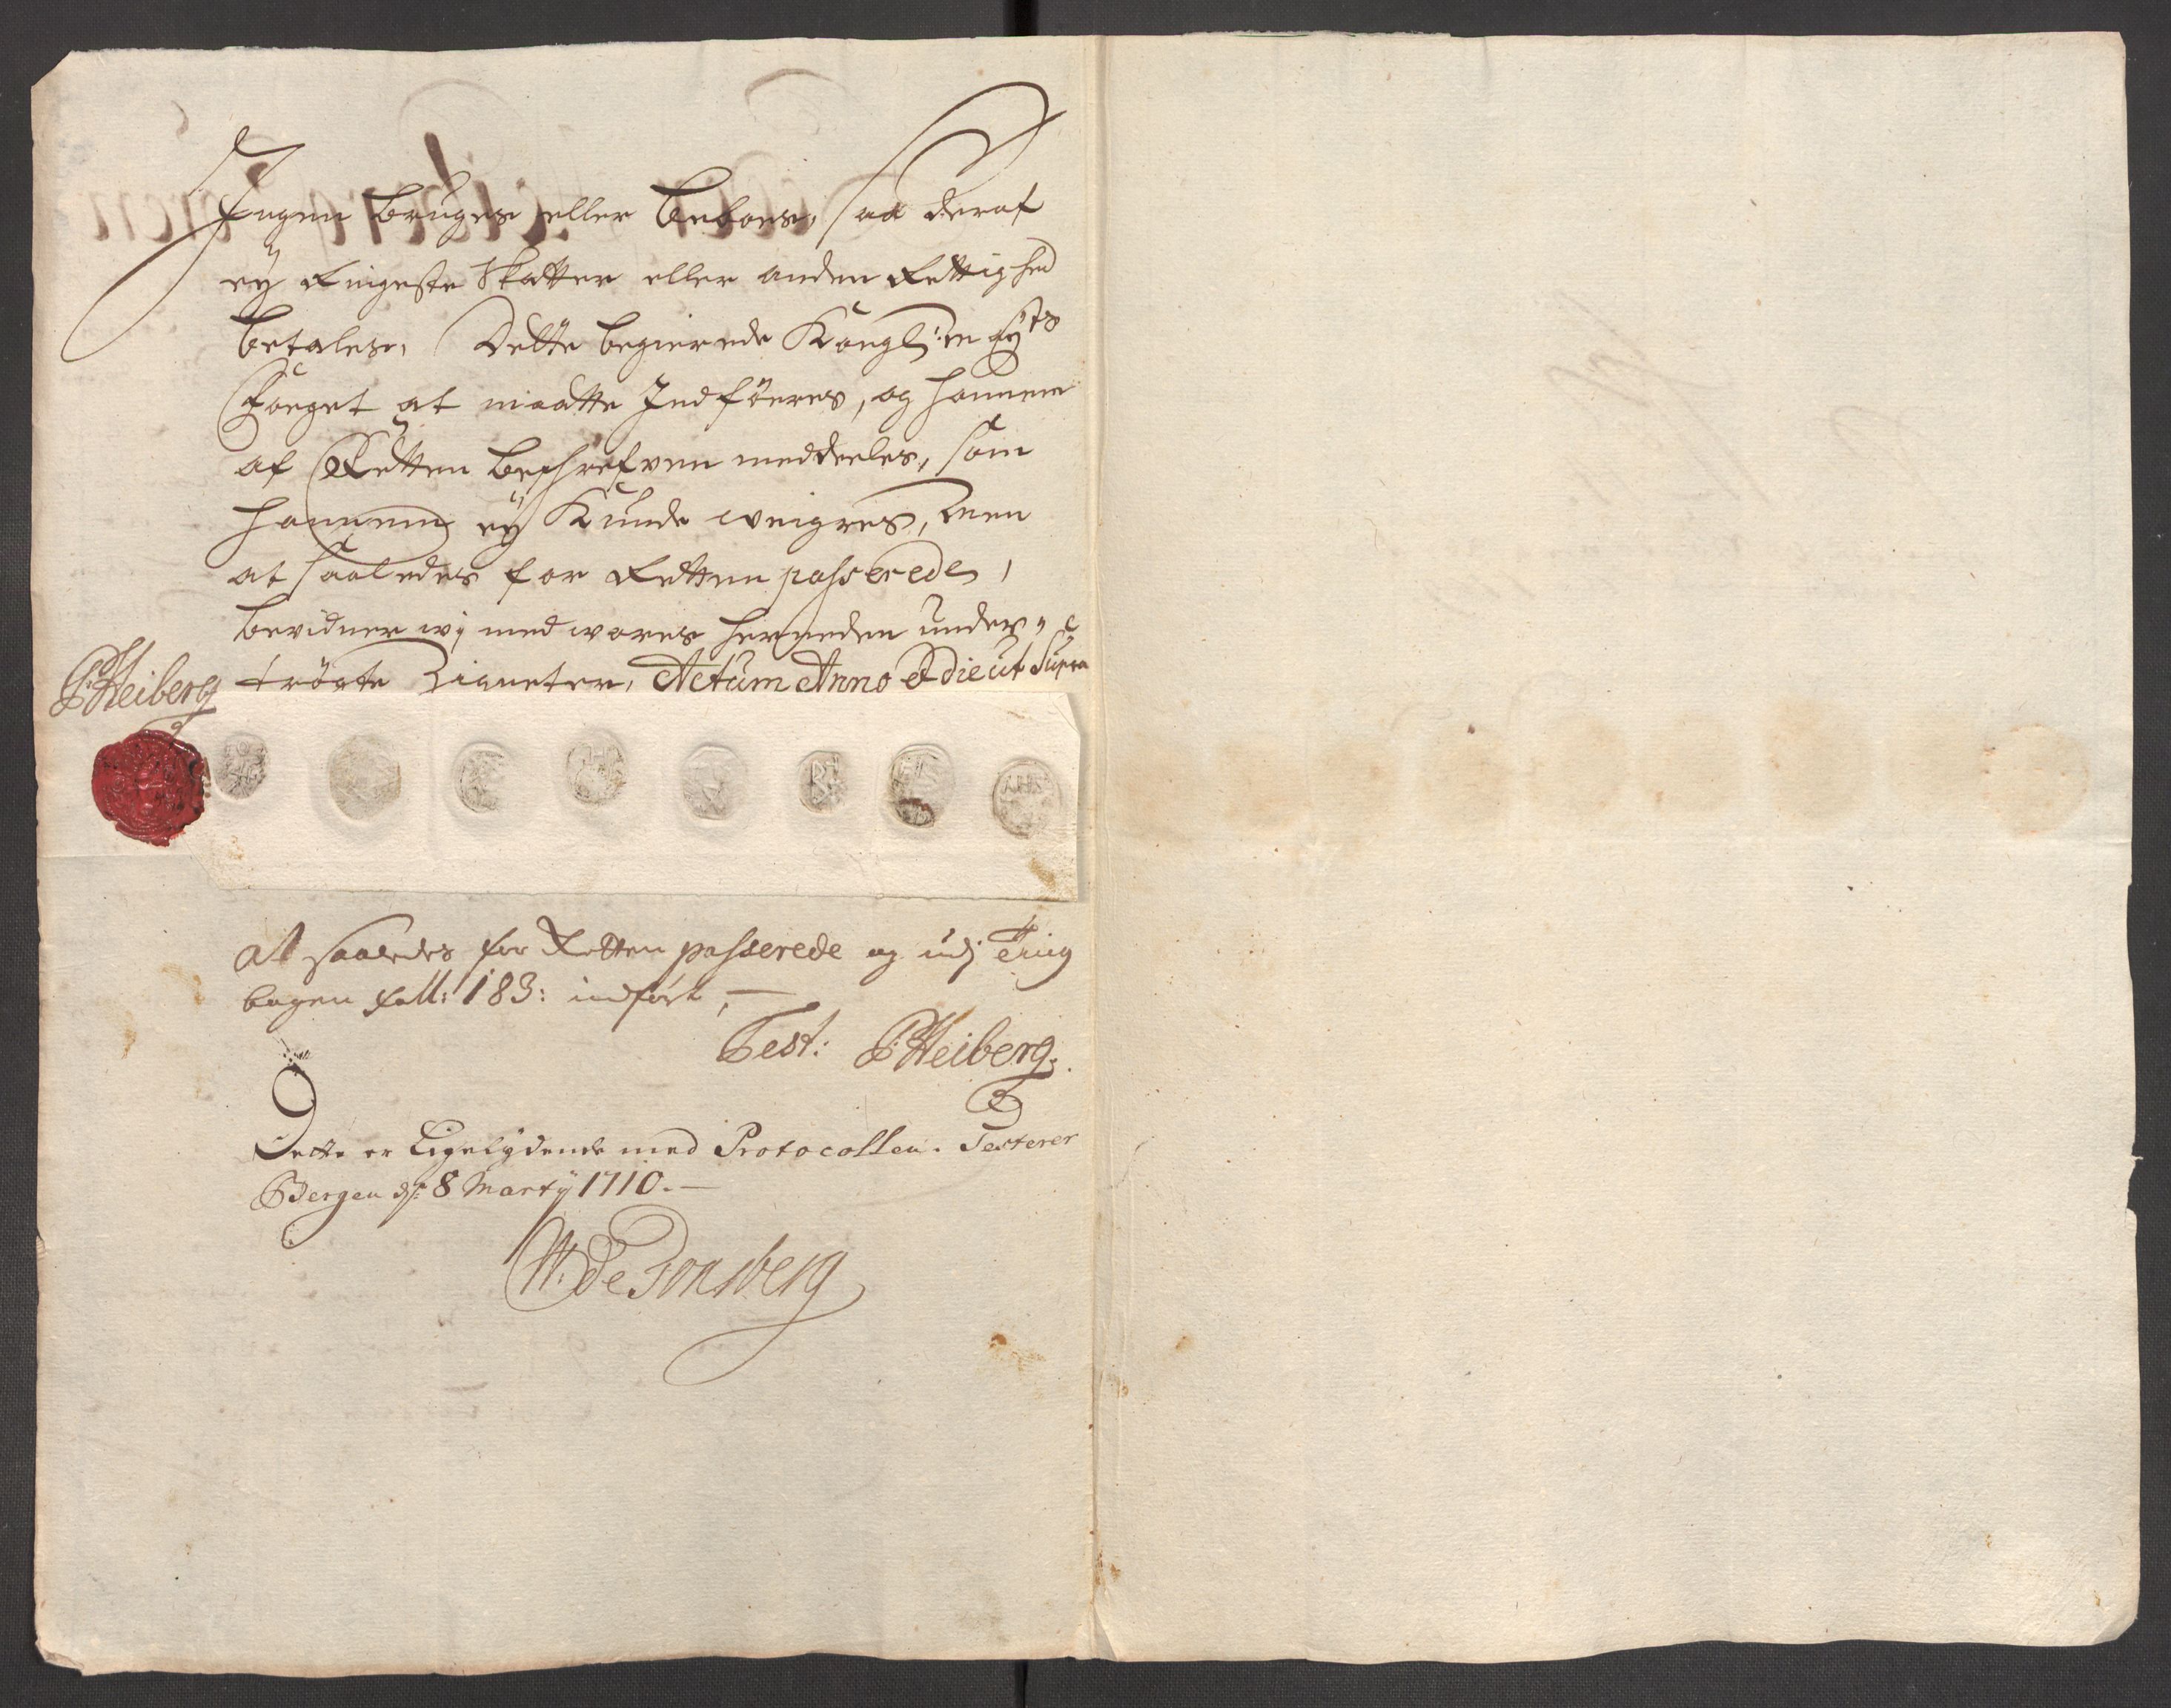 Ingen bruges eller beboes, saa deraf
ey Ringeste Skatter eller anden Rettighed
betales, Dette begierede Kongl: Mayts
Foeget at maatte Indføeres, og hannem
af Retten beschrefven meddeeles, som
hannem ey Kunde weigres, Men
at saaledes for Retten passerede,
bevidner wj med wores herneden under-
trögte Zigneter, Actum Anno & die ut Supra
P Heiberg
at saaledes for Retten passerede og udj Ting
bogen foll: 183: indført,
Test: P Heiberg.
Dette er Ligelydende med Protocollen. Testerer
Bergen d: 8 Marty 1710.
W: De Tonsberg